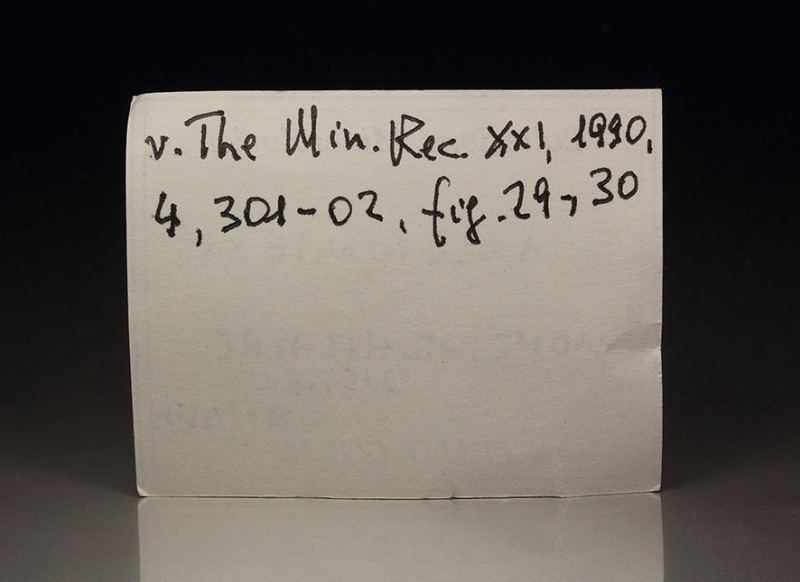 v. The Min. Rec. XXI, 1990,
4, 301-02, fig. 29, 30